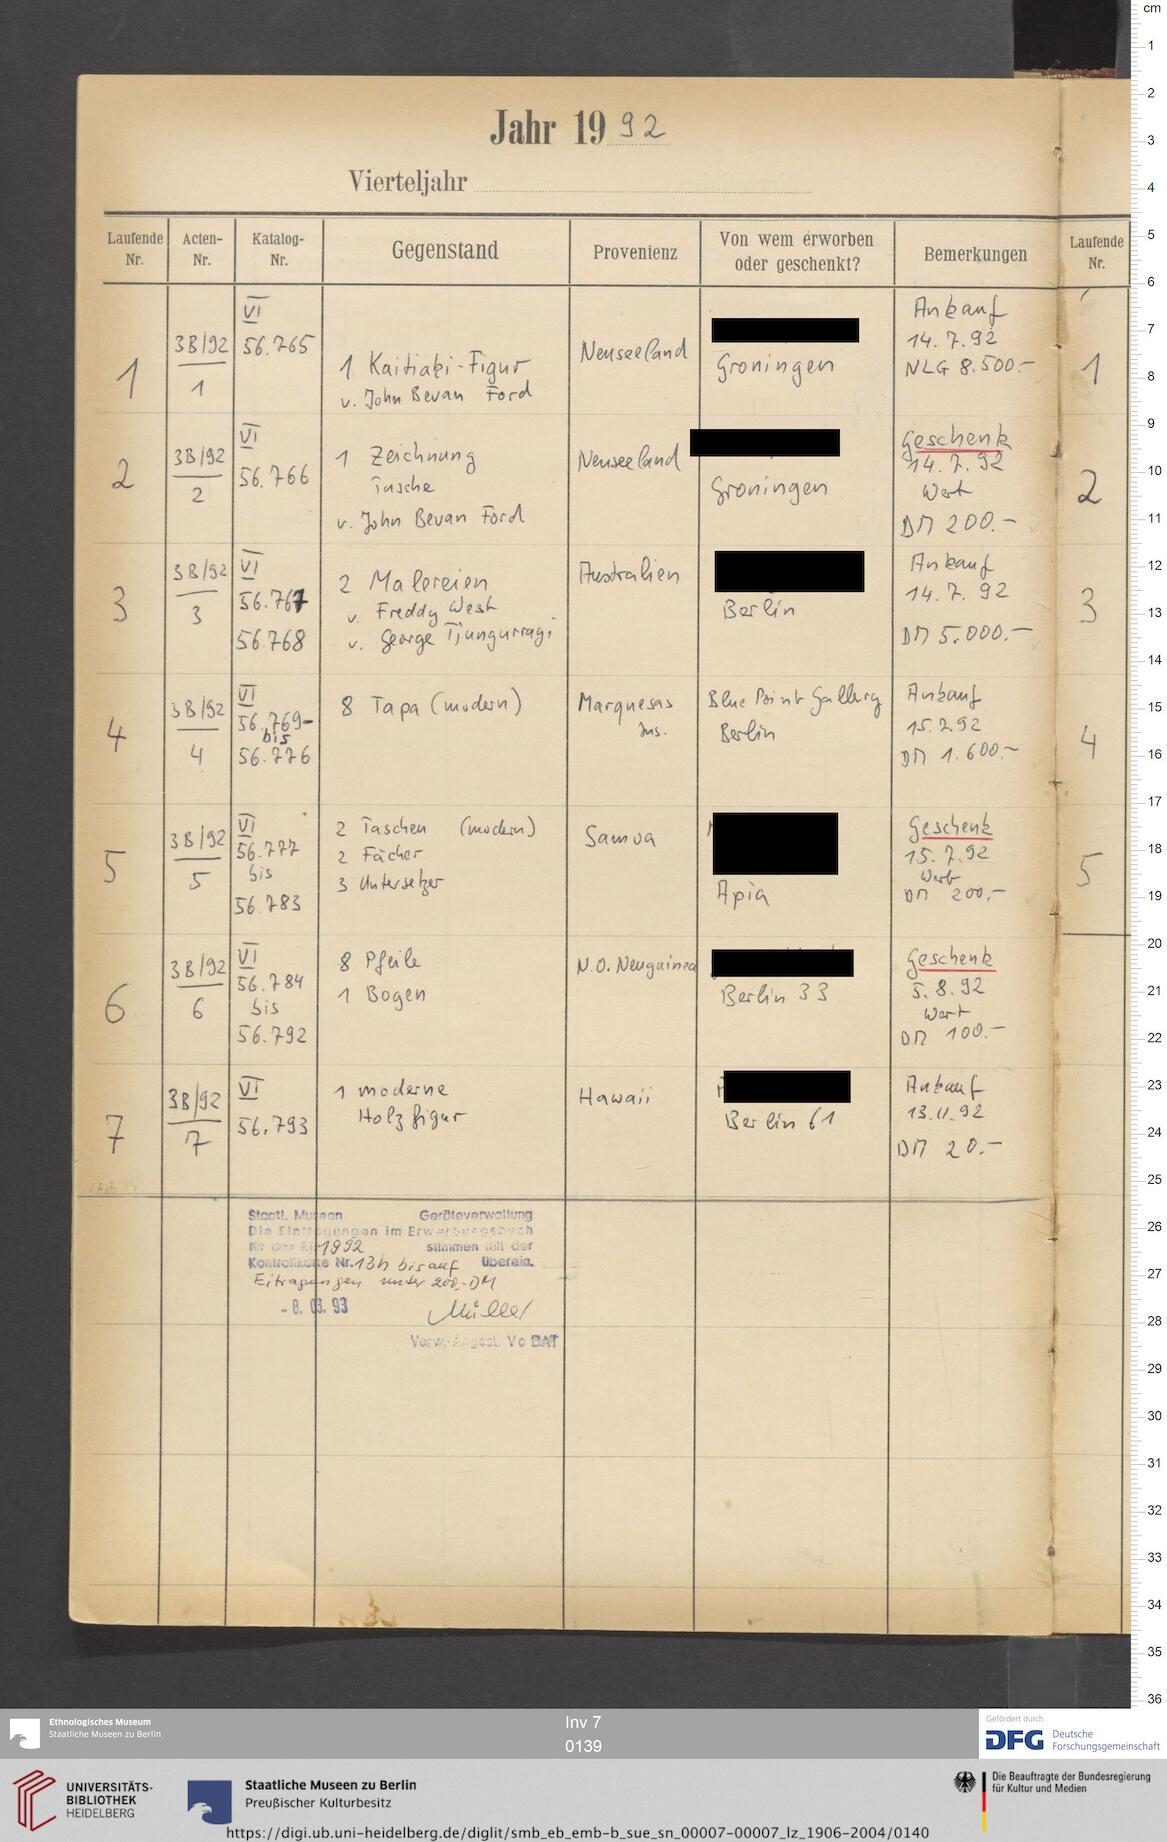 Jahr 1992
Vierteljahr
Laufende Nr.
Acten-Nr.
Katalog-Nr.
Gegenstand
Provenienz
Von wem erworben oder geschenkt?
Bemerkungen
Laufende Nr.
1
3B/92
1
VI
56.765
1 Kaitiaki-Figur
v. John Bevan Ford
Neuseeland
Groningen
Ankauf
14.7.92
NLG 8.500.-
1
2
3B/92
2
VI
56.766
1 Zeichnung
Tusche
v. John Bevan Ford
Neuseeland
Groningen
Geschenk
14.7.92
Wert
DM 200.-
2
3
3B/92
3
VI
56.767
56.768
2 Malereien
v. Freddy West
v. George Tjungurragi
Australien
Berlin
Ankauf
14.7.92
DM 5.000.-
3
4
3B/92
4
VI
56.769-
bis
56.776
8 Tapa (modern)
Marquesas
Ins.
Blue Point Gallery
Berlin
Ankauf
15.7.92
DM 1.600.-
4
5
3B/92
5
VI
56.777
bis
56.783
2 Taschen (modern)
2 Fächer
3 Untersetzer
Samoa
Apia
Geschenk
15.7.92
Wert
DM 200,-
5
6
3B/92
6
VI
56.784
bis
56.792
8 Pfeile
1 Bogen
N.O. Neuguinea
Berlin 33
Geschenk
5.8.92
Wert
DM 100.-
7
3B/92
7
VI
56.793
1 moderne
Holzfigur
Hawaii
Berlin 61
Ankauf
13.11.92
DM 20.-
Staatl. Museen Geräteverwaltung
Die Eintragungen im Erwerbungsbuch
für das 1992 stimmen mit der
Kontrollkarte Nr. 13h bis auf überein.
Eitragungen unter 200,-DM
- 8. 03. 93
Müller
Verw.-Angest. Vc BAT
cm
1
2
3
4
5
6
7
8
9
10
11
12
13
14
15
16
17
18
19
20
21
22
23
24
25
26
27
28
29
30
31
32
33
34
35
36
Ethnologisches Museum
Staatliche Museen zu Berlin
Inv 7
0139
Gefördert durch
DFG Deutsche
Forschungsgemeinschaft
UNIVERSITÄTS-
BIBLIOTHEK
HEIDELBERG
Staatliche Museen zu Berlin
Preußischer Kulturbesitz
Die Beauftragte der Bundesregierung
für Kultur und Medien
https://digi.ub.uni-heidelberg.de/diglit/smb_eb_emb-b_sue_sn_00007-00007_lz_1906-2004/0140